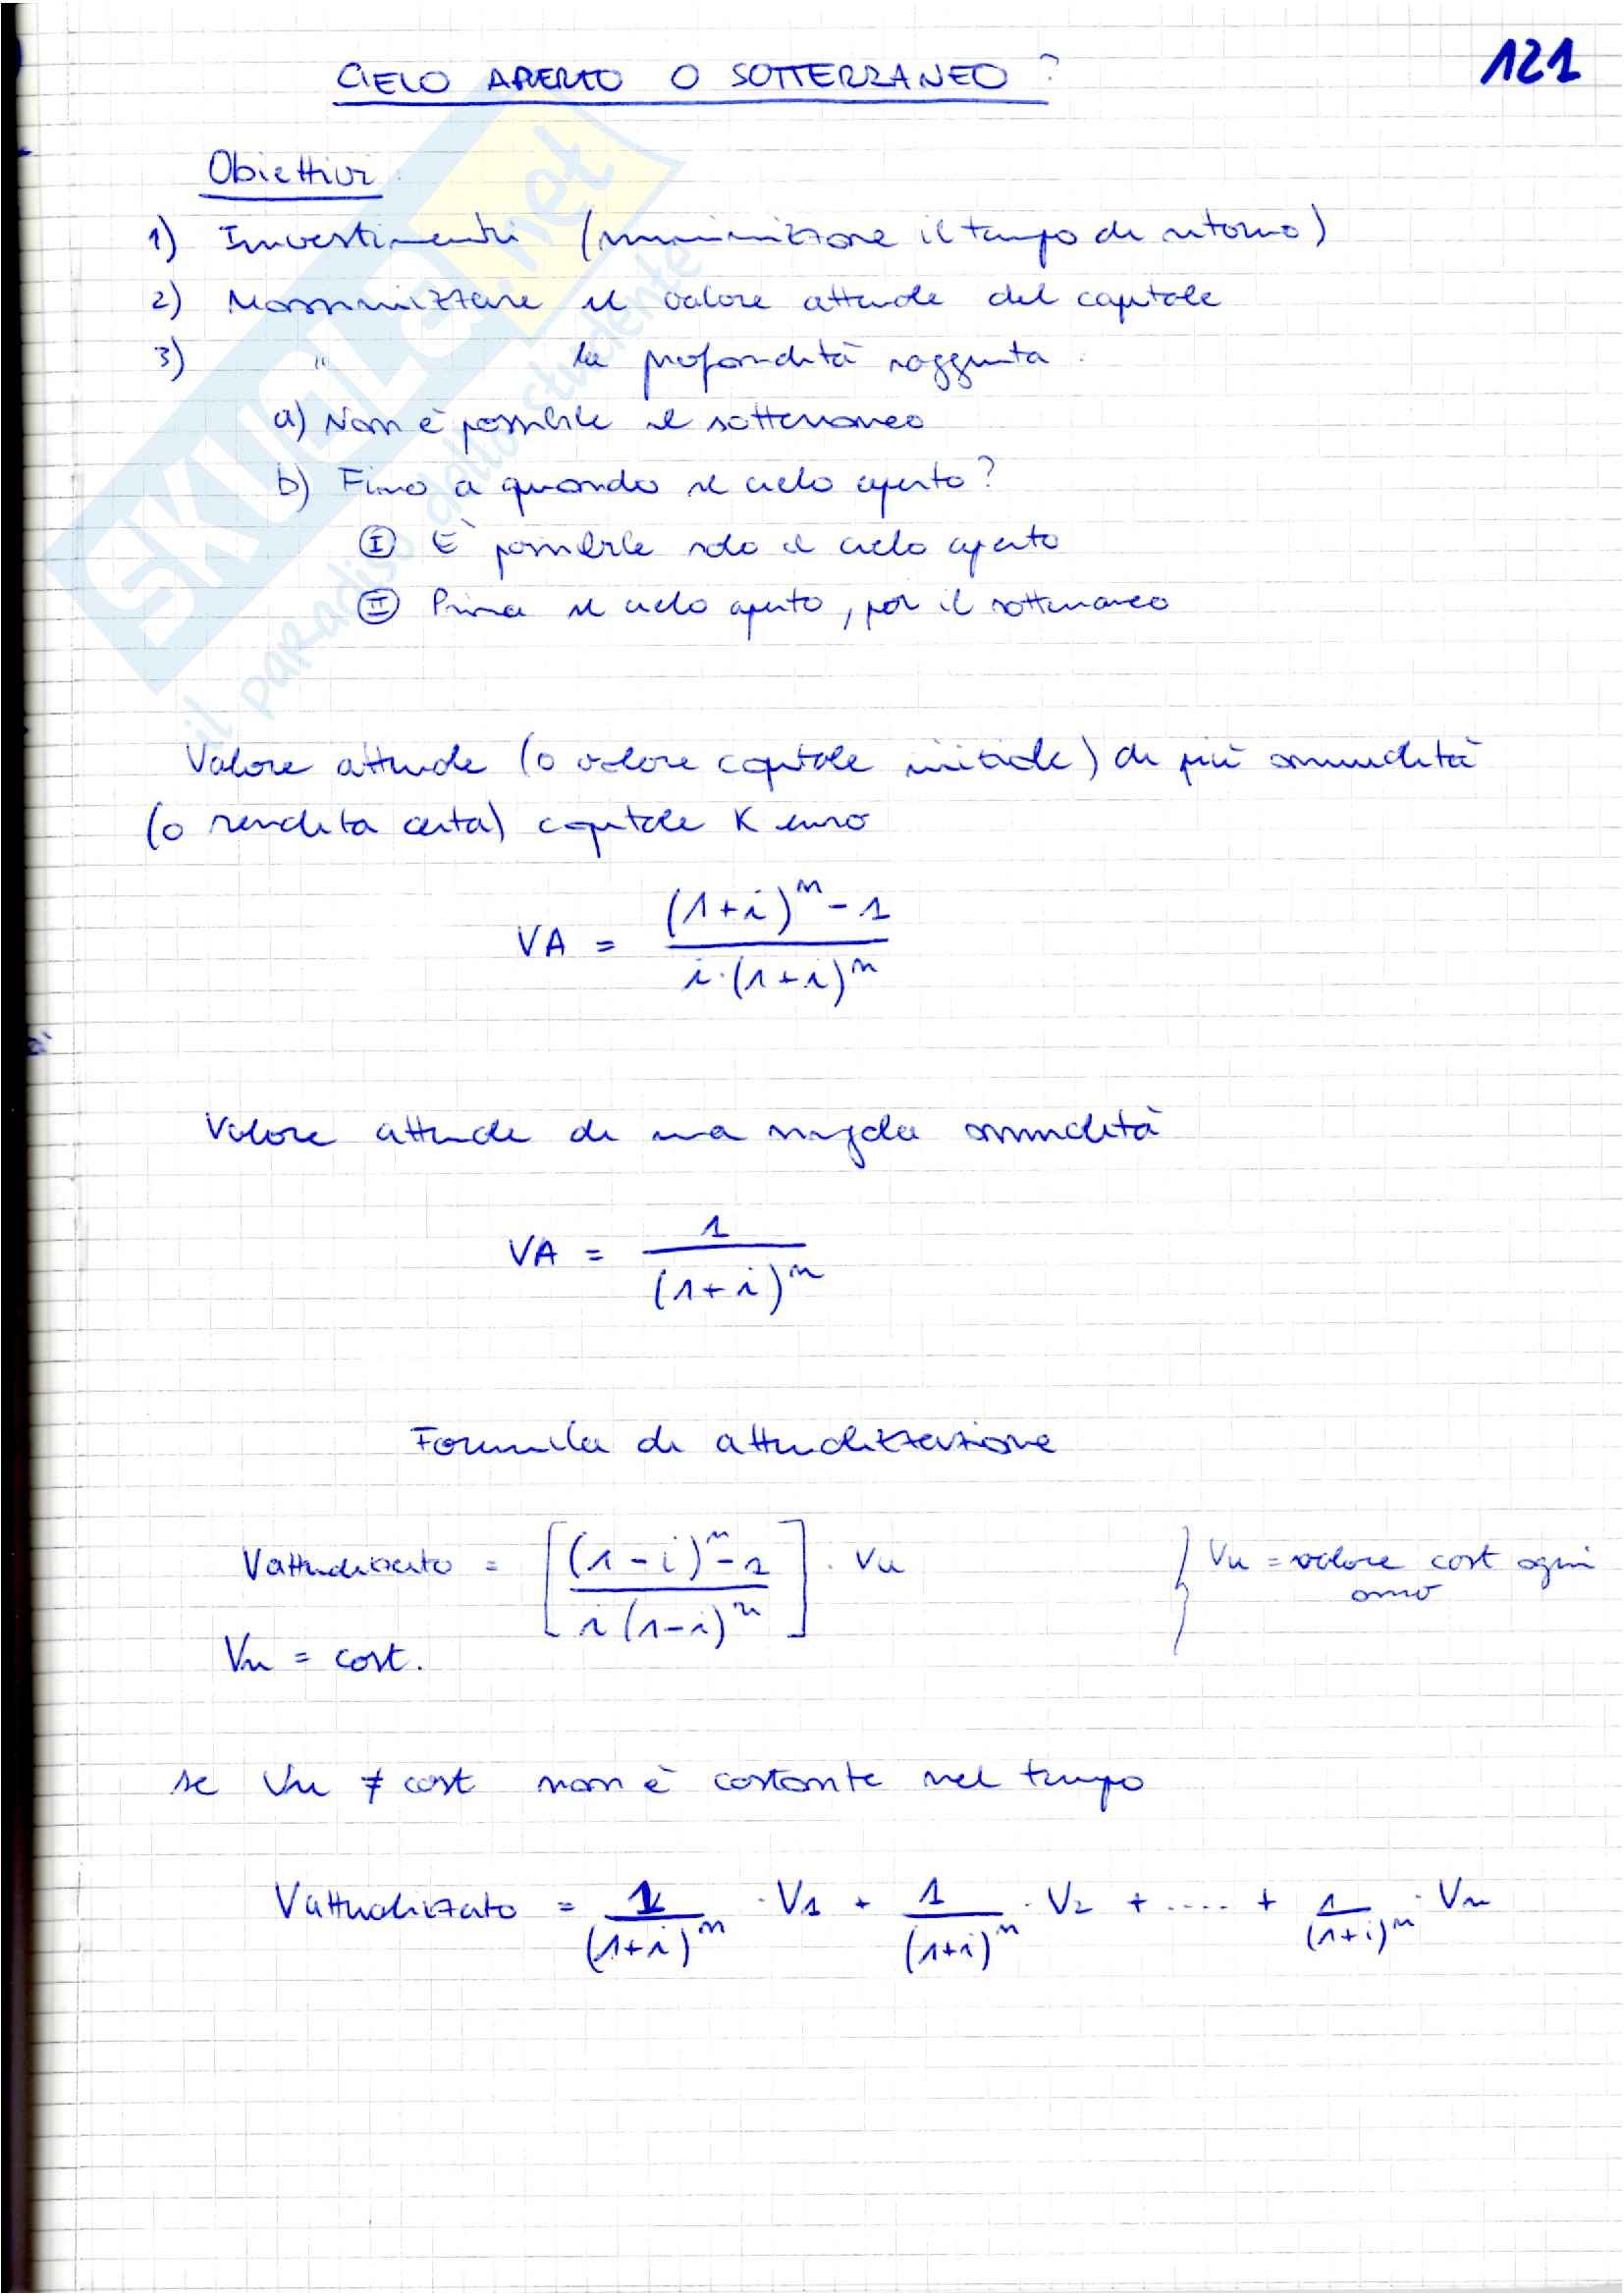 121
CIELO APERTO O SOTTERRANEO ?
Obiettivi
1) Investimenti (minimizzare il tempo di ritorno)
2) Massimizzare il valore attuale del capitale
3) " la profondità raggiunta.
a) Non è possibile il sotterraneo
b) Fino a quando il cielo aperto?
I È possibile solo il cielo aperto
II Prima il cielo aperto, poi il sotterraneo
Valore attuale (o valore capitale iniziale) di più annualità
(o rendita certa) capitale K euro
VA = \frac{(1+i)^n - 1}{i·(1+i)^n}
Valore attuale di una singola annualità
VA = \frac{1}{(1+i)^n}
Formula di attualizzazione
Vattualizzato = [\frac{(1-i)^n - 1}{i(1-i)^n}] · Vn } Vn = valore cost ogni
anno
Vn = cost.
se Vn ≠ cost non è costante nel tempo
Vattualizzato = \frac{1}{(1+i)^n} · V1 + \frac{1}{(1+i)^n} · V2 + .... + \frac{1}{(1+i)^n} · Vn
SKUOLA.net
il paradiso dello studente